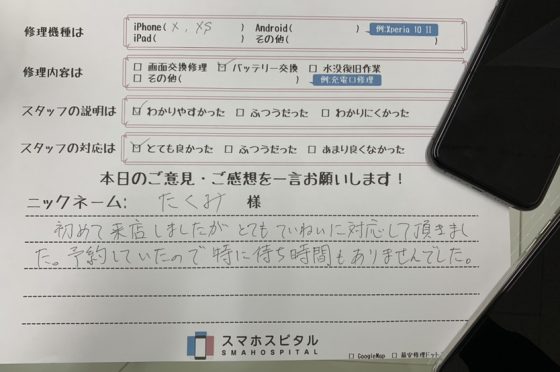 修理機種は
iPhone( X, XS ) Android( ) 例:Xperia 10 II
iPad( ) その他( )
修理内容は
□ 画面交換修理 ☑ バッテリー交換 □ 水没復旧作業
□ その他( ) 例:充電口修理
スタッフの説明は ☑ わかりやすかった □ ふつうだった □ わかりにくかった
スタッフの対応は ☑ とても良かった □ ふつうだった □ あまり良くなかった
本日のご意見・ご感想を一言お願いします!
ニックネーム: たくみ 様
初めて来店しましたが とてもていねいに対応して頂きまし
た。予約していたので特に待ち時間もありませんでした。
スマホスピタル
SMAHOSPITAL
□ GoogleMap □ 最安修理ドット